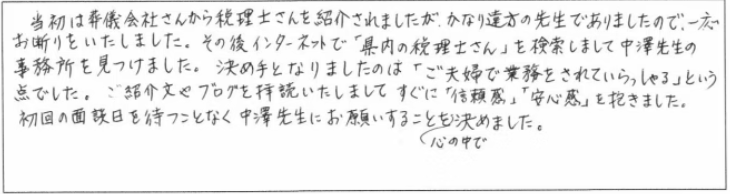 当初は葬儀会社さんから税理士さんを紹介されましたが、かなり遠方の先生でありましたので、一応
お断りをいたしました。その後インターネットで「県内の税理士さん」を検索しまして中澤先生の
事務所を見つけました。決め手となりましたのは「ご夫婦で業務をされていらっしゃる」という
点でした。ご紹介文やブログを拝読いたしましてすぐに「信頼感」、「安心感」を抱きました。
初回の面談日を待つことなく中澤先生にお願いすることを決めました。
心の中で